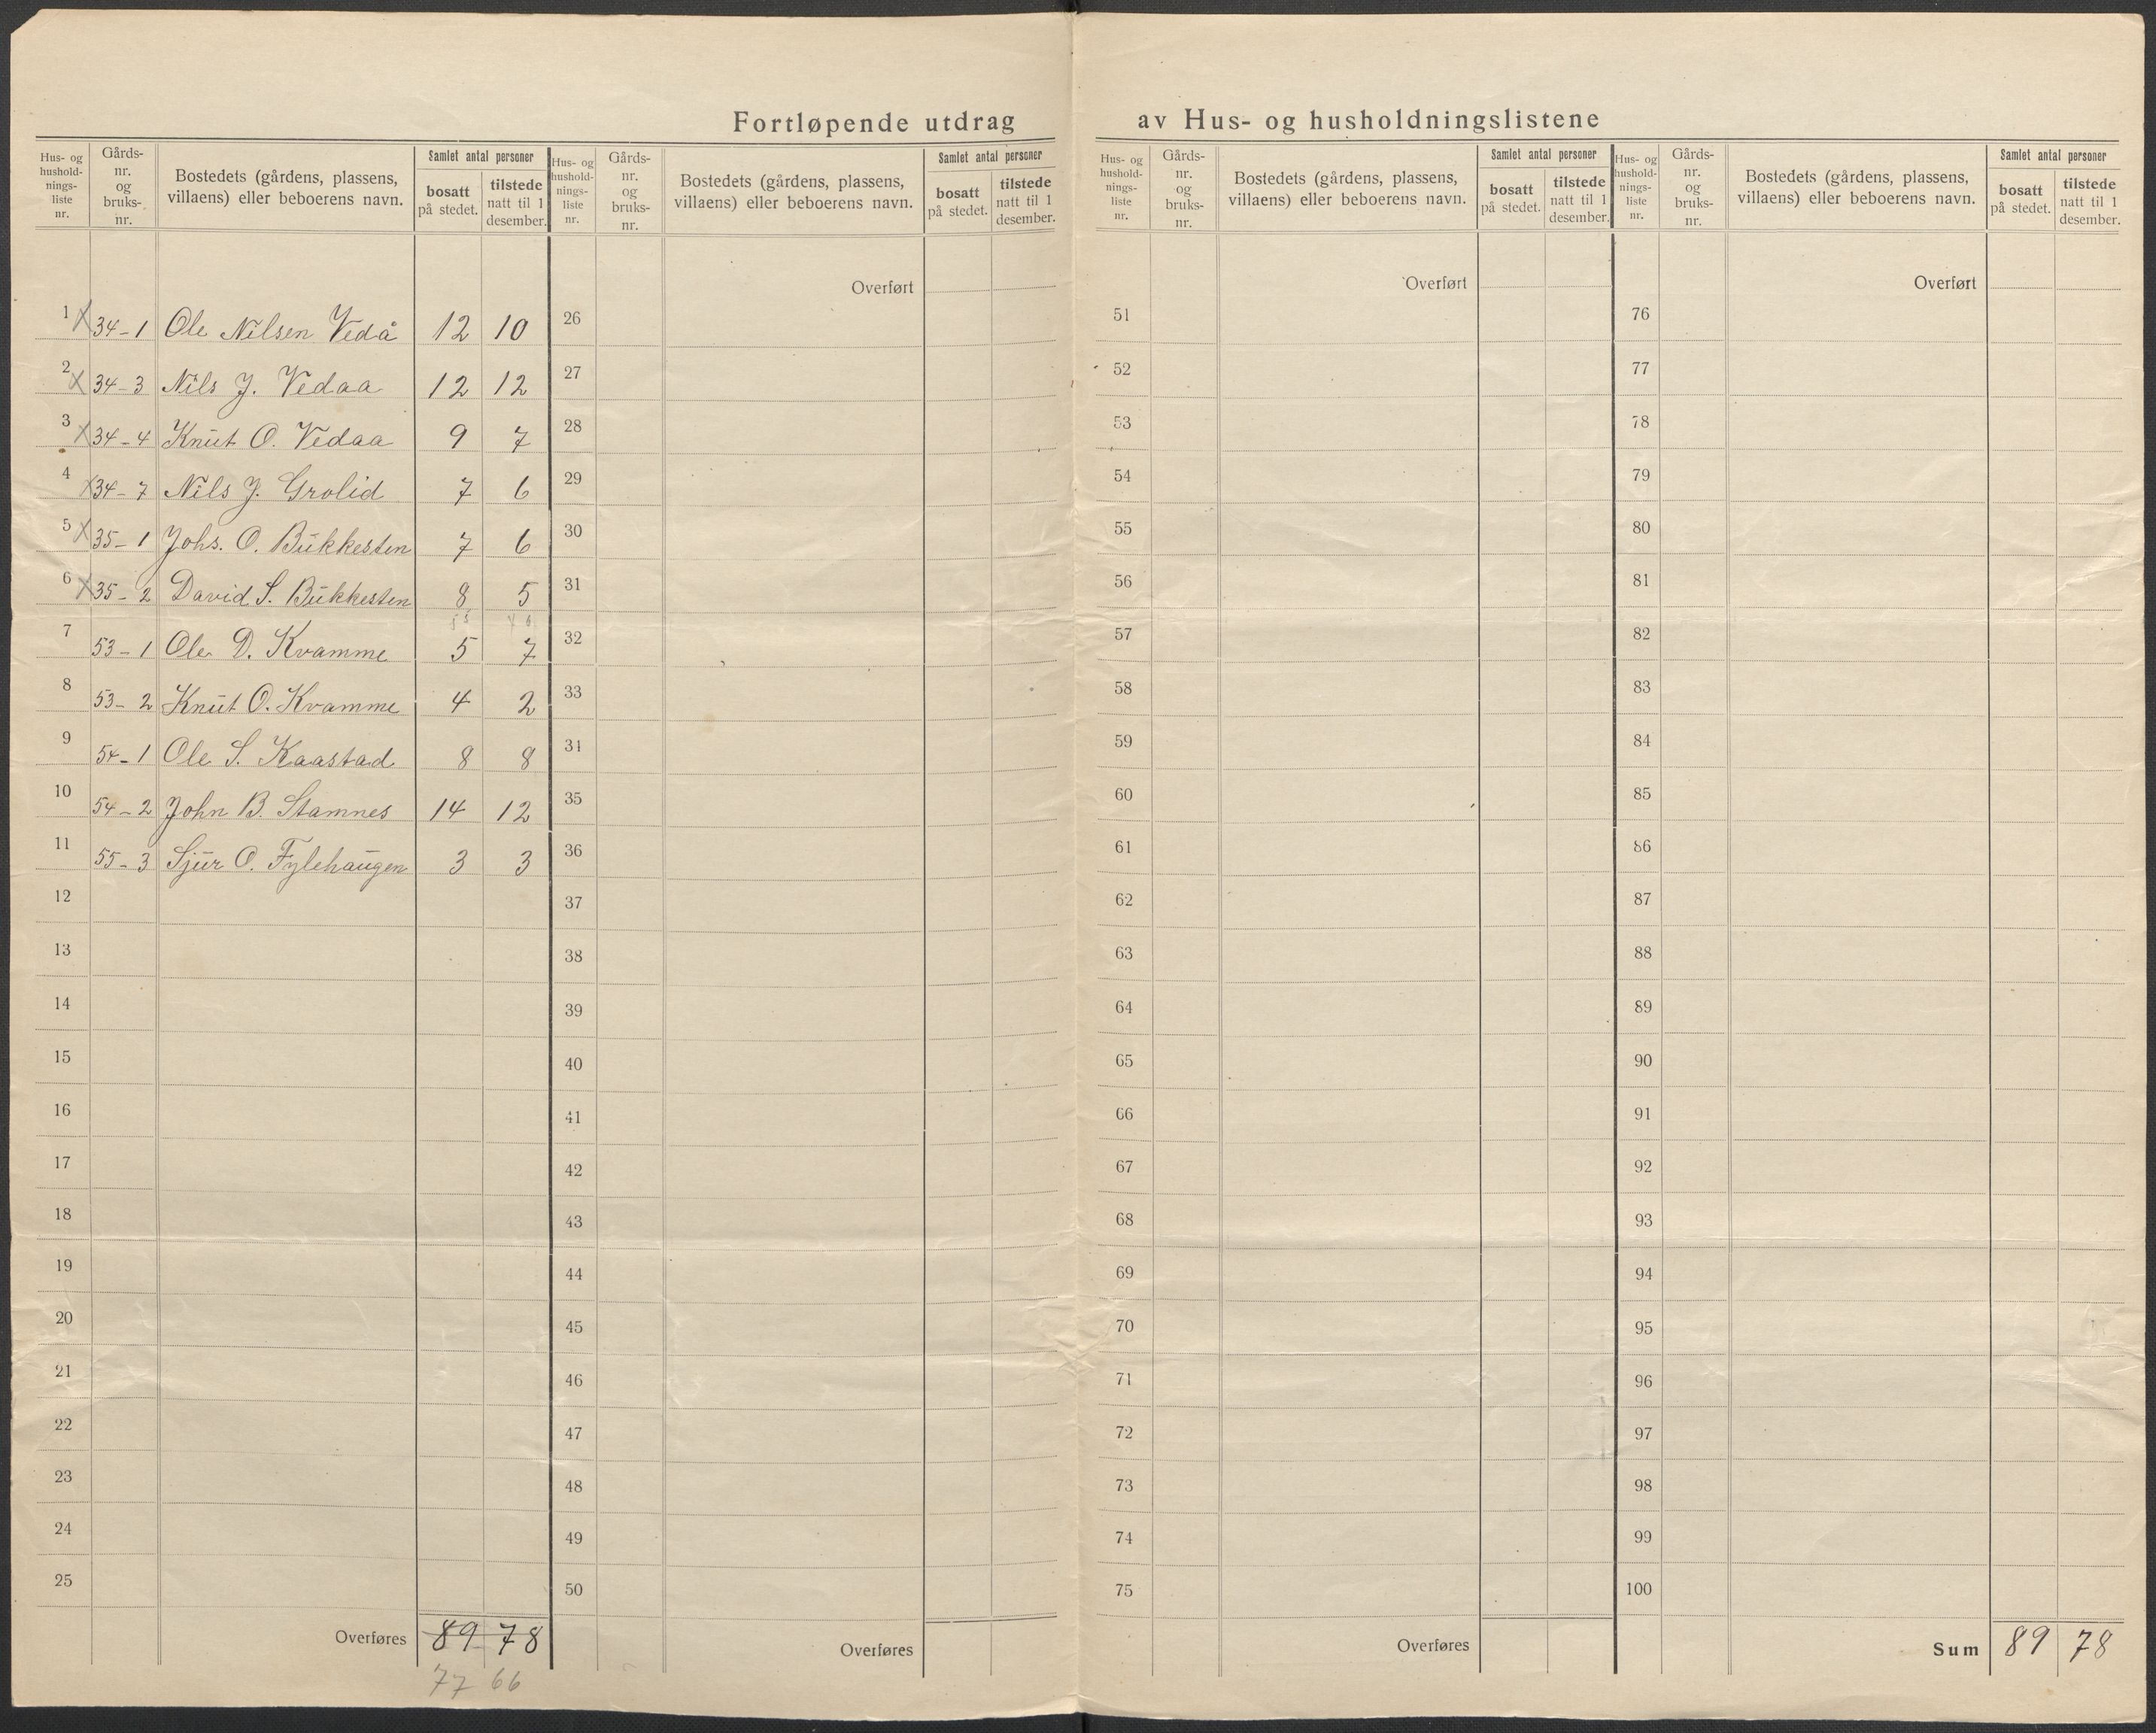 Fortløpende utdrag av Hus- og husholdningslistene
Hus- og hushold-nings-liste nr. Gårds-nr. og bruks-nr. Bostedets (gårdens, plassens, villaens) eller beboerens navn. Samlet antal personer bosatt på stedet. tilstede natt til 1 desember.
1 X 34-1 Ole Nilsen Vedå 12 10
2 X 34-3 Nils J. Vedaa 12 12
3 X 34-4 Knut O. Vedaa 9 7
4 X 34-7 Nils J. Grolid 7 6
5 X 35-1 Johs. O. Bukkesten 7 6
6 X 35-2 David S. Bukkesten 8 5
7 53-1 Ole D. Kvamme 5 7
8 53-2 Knut O. Kvamme 4 2
9 54-1 Ole S. Kaastad 8 8
10 54-2 John B. Stamnes 14 12
11 55-3 Sjur O. Fylehaugen 3 3
12
13
14
15
16
17
18
19
20
21
22
23
24
25
Overføres 89 78
77 66
Hus- og hushold-nings-liste nr. Gårds-nr. og bruks-nr. Bostedets (gårdens, plassens, villaens) eller beboerens navn. Samlet antal personer bosatt på stedet. tilstede natt til 1 desember.
Overført
26
27
28
29
30
31
32
33
34
35
36
37
38
39
40
41
42
43
44
45
46
47
48
49
50
Overføres
Hus- og hushold-nings-liste nr. Gårds-nr. og bruks-nr. Bostedets (gårdens, plassens, villaens) eller beboerens navn. Samlet antal personer bosatt på stedet. tilstede natt til 1 desember.
Overført
51
52
53
54
55
56
57
58
59
60
61
62
63
64
65
66
67
68
69
70
71
72
73
74
75
Overføres
Hus- og hushold-nings-liste nr. Gårds-nr. og bruks-nr. Bostedets (gårdens, plassens, villaens) eller beboerens navn. Samlet antal personer bosatt på stedet. tilstede natt til 1 desember.
Overført
76
77
78
79
80
81
82
83
84
85
86
87
88
89
90
91
92
93
94
95
96
97
98
99
100
Sum 89 78